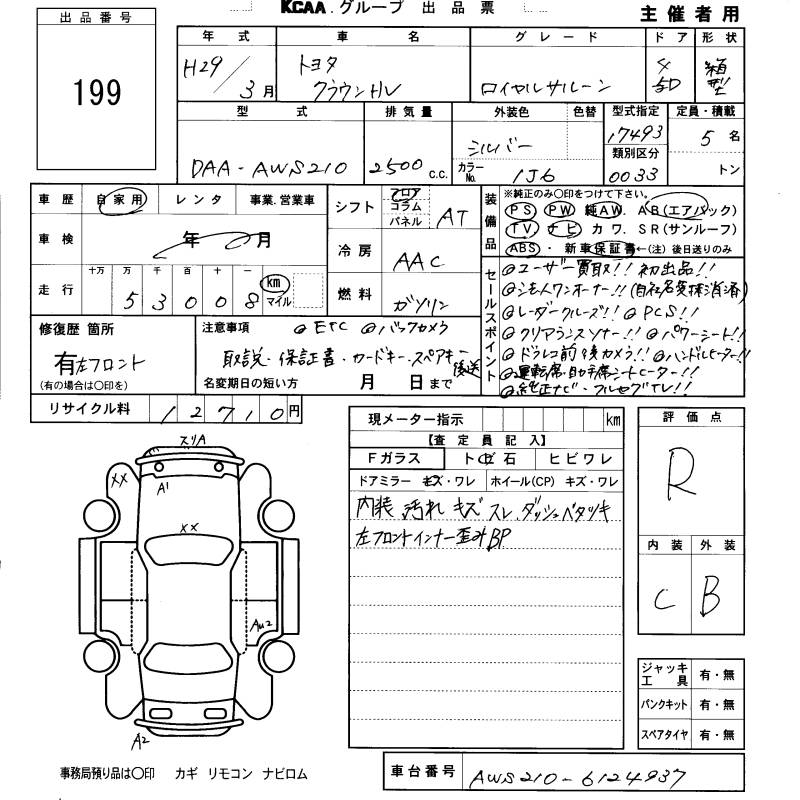 KCAA.グループ 出品票
主催者用
出品番号
199
年式 車名 グレード ドア 形状
H29/3月 トヨタ クラウンHV ロイヤルサルーン 4 5D 箱型
型式 排気量 外装色 色替 型式指定 定員・積載
DAA-AWS210 2500 c.c. シルバー カラーNo. 1J6 17493 5名
類別区分 0033 トン
車歴 自家用 レンタ 事業.営業車
シフト フロア コラム パネル AT
装備品
※純正のみ〇印をつけて下さい。
PS PW 純AW. AB(エアバック)
TV ナビ カワ. SR(サンルーフ)
ABS・新車保証書←(注)後日送りのみ
車検 年 月
冷房 AAC
走行 十万 万 千 百 十 一
53008 km マイル
燃料 ガソリン
セールスポイント
◎ユーザー買取!! 初出品!!
◎シモ人ワンオーナー!!(自社名変抹消済)
◎レーダークルーズ!! ◎PCS!!
◎クリアランスソナー!! ◎パワーシート!!
◎ドラレコ前後カメラ!! ◎ハンドルヒーター!!
◎運転席・助手席シートヒーター!!
◎純正ナビ・フルセグTV!!
修復歴 箇所
有 左フロント
(有の場合は〇印を)
注意事項 ◎ETC ◎バックカメラ
取説・保証書・カードキー・スペアキー後送
名変期日の短い方 月 日まで
リサイクル料 12710円
現メーター指示 km
【査定員記入】
Fガラス トビ石 ヒビワレ
ドアミラー キズ・ワレ ホイール(CP) キズ・ワレ
内装 汚れ キズ スレ.ダッシュベタツキ
左フロントインナー歪みBP
評価点
R
内装 外装
C B
スリA
XX
A1
XX
AU2
A2
ジャッキ工具 有・無
パンクキット 有・無
スペアタイヤ 有・無
事務局預り品は〇印 カギ リモコン ナビロム
車台番号 AWS210-6124937